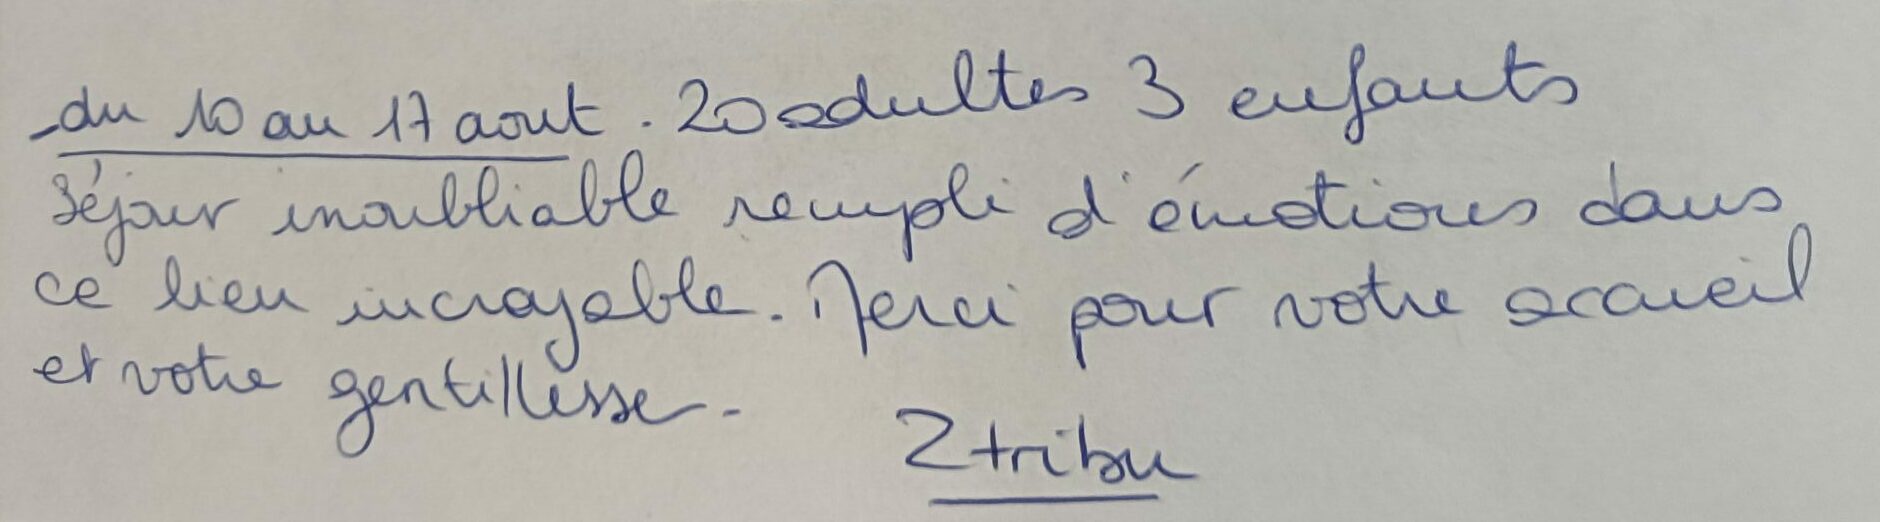 - du 10 au 17 aout. 20 adultes 3 enfants
Séjour inoubliable rempli d'émotions dans
ce lieu incroyable. Merci pour votre accueil
et votre gentillesse.
Z tribu